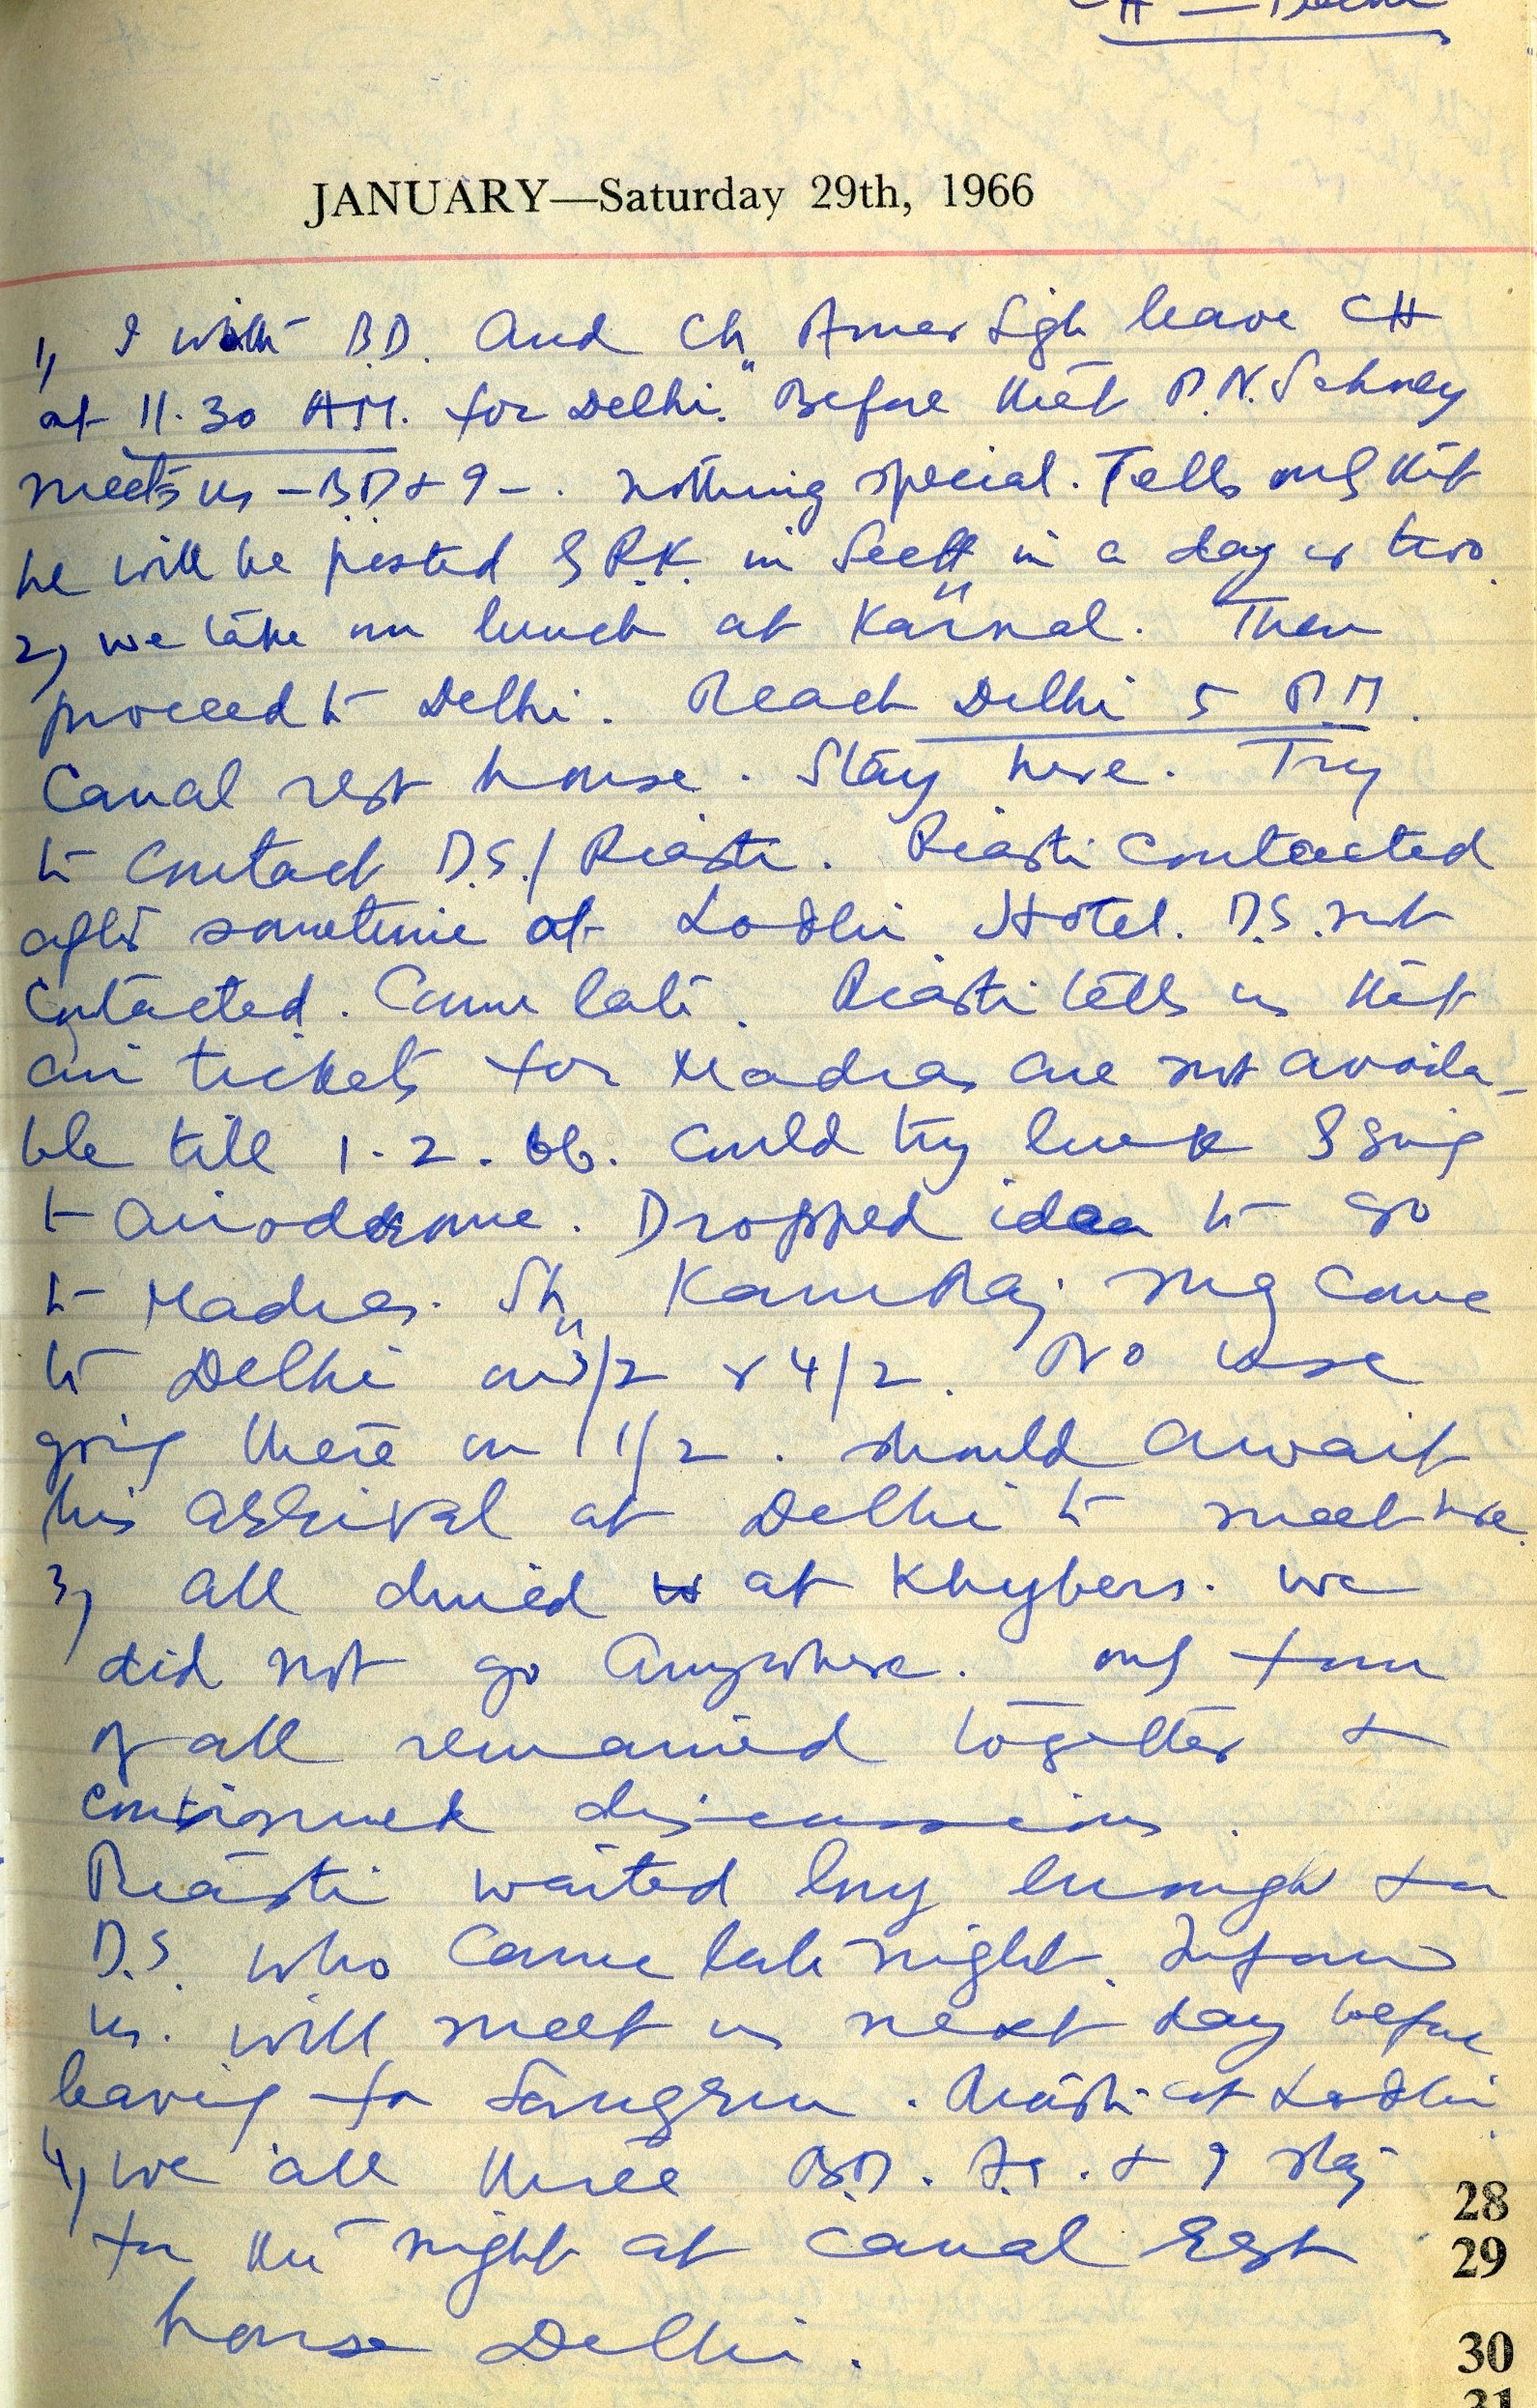 CH — Delhi
JANUARY—Saturday 29th, 1966
1, I with B.D. and Ch. Amar Sigh leave CH
at 11.30 A.M. for Delhi. Before that P.N. Sahney
meets us – BD & I –. nothing special. Tells me that
he will be posted in in a day or two.
2, we take our lunch at Karnal. Then
proceed to Delhi. Reach Delhi 5 P.M.
Canal rest house. Stay here. Try
to contact D.S./Riasti. Riasti contacted
after sometime at Lodhi Hotel. D.S. not
contacted. Came late. Riasti tells us that
air tickets for Madras are not availa-
ble till 1.2.66. Could try luck going
to airodrome. Dropped idea to go
to Madras. Sh. KamRaj may come
to Delhi on 3/2 or 4/2. No use
going there on 1/2. should await
his arrival at Delhi to meet here.
3, all dined at Khybers. we
did not go anywhere. four
of all remained together &
continued discussions.
Riasti waited long enough for
D.S. who came late night. Inform
us. will meet us next day before
leaving for Sangrur. Riasti at Lodhi.
4, we all three B.D. A.S. & I stay
for the night at Canal Rest
house Delhi.
28
29
30
31